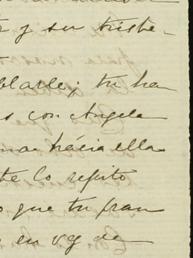 r y su triste-
blarle; tu ha
s con Angela
hácia ella
te lo repito
o que tu fran
y en vg de